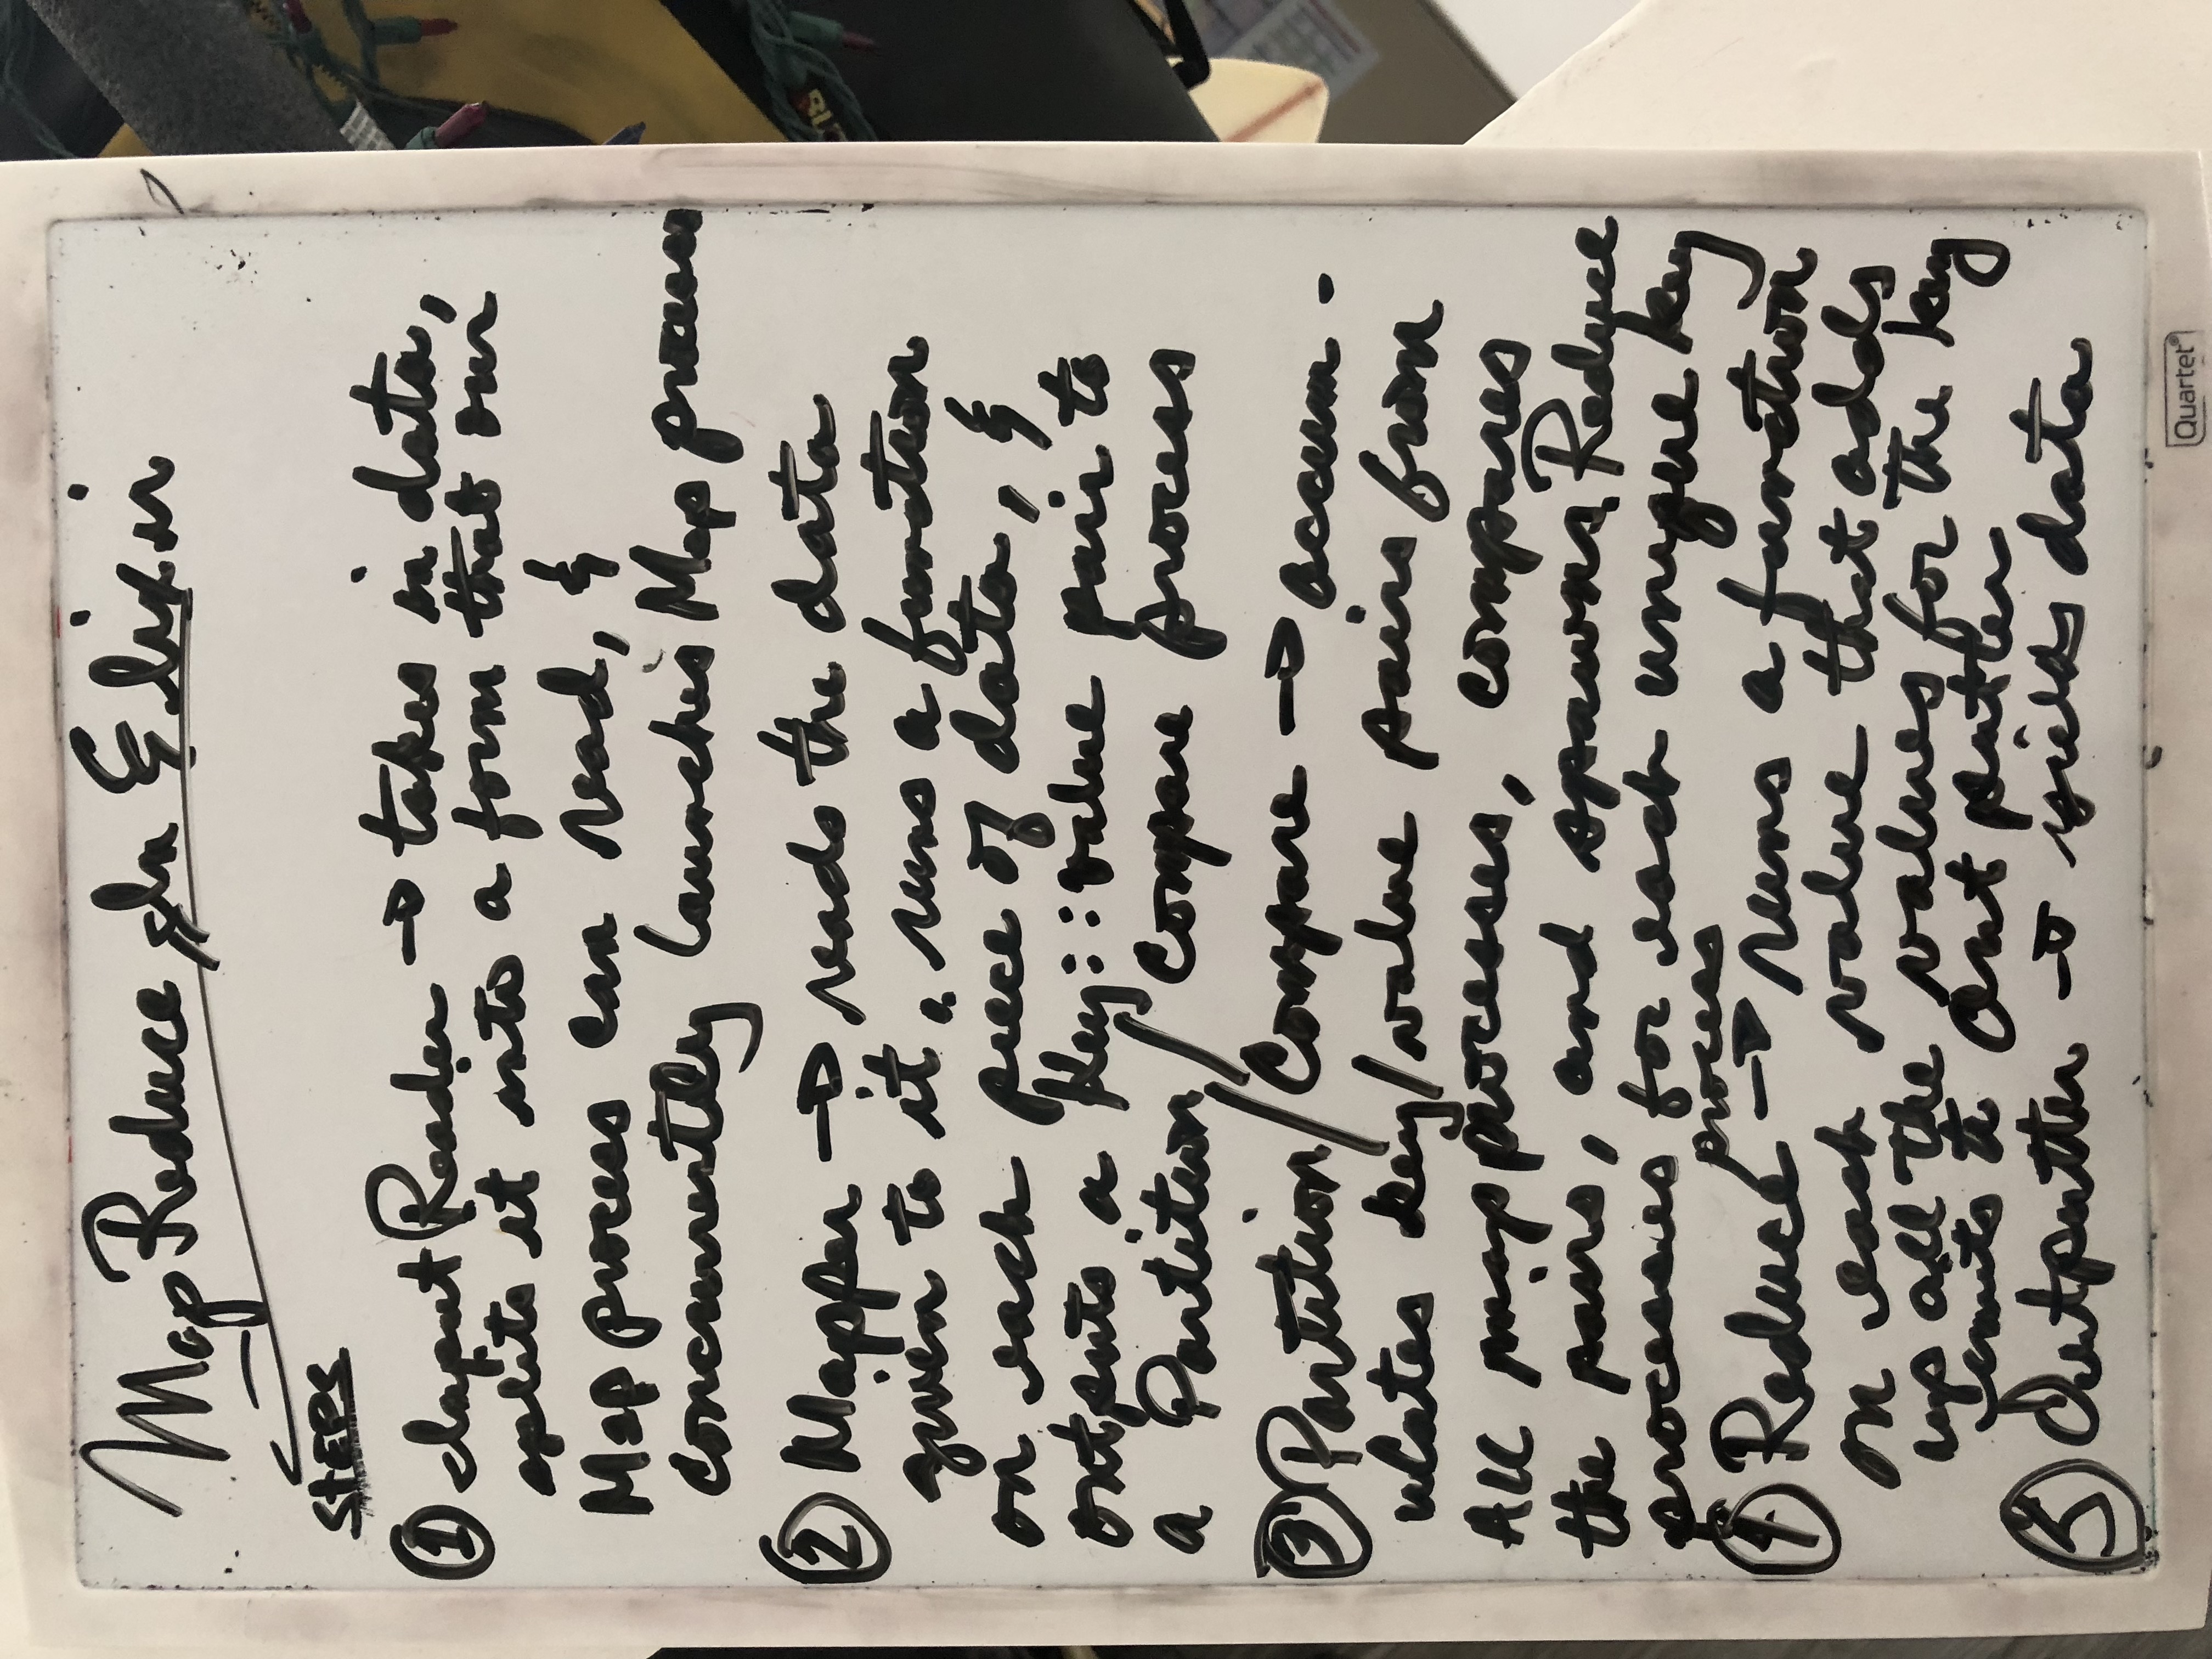 MapReduce In Elixir
STEPS
① Input Reader → takes in data,
splits it into a form that our
Map process can read, &
concurrently launches Map process
② Mapper → reads the data
given to it, runs a function
on each piece of data, &
outputs a key::value pair to
a Partition/Compare process
③ Partition/Compare → accum-
ulates key/value pairs from
All map processes, compares
the pairs, and spawns Reduce
processes for each unique key
process
④ Reduce → runs a function
on each value that adds
up all the values for the key
emits to Outputter
⑤ Outputter → yields data
Quartet®